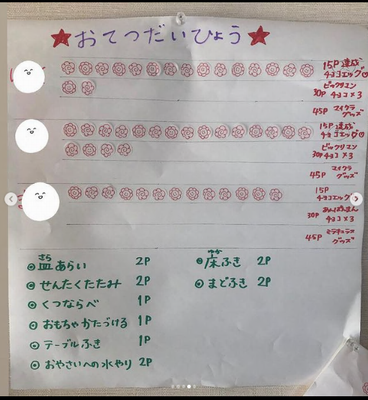 ★おてつだいひょう★
15P 達成
チョコエッグ
ビックリマン
30P チョコ×3
45P マイクラ
グッズ
15P 達成
チョコエッグ
ビックリマン
30P チョコ×3
45P マイクラ
グッズ
15P
チョコエッグ
30P あんぱんまん
チョコ×3
45P
グッズ
◎皿あらい 2P
さら
◎せんたくたたみ 2P
◎くつならべ 1P
◎おもちゃかたづける 1P
◎テーブルふき 1P
◎おやさいへの水やり 2P
◎床ふき 2P
ゆか
◎まどふき 2P